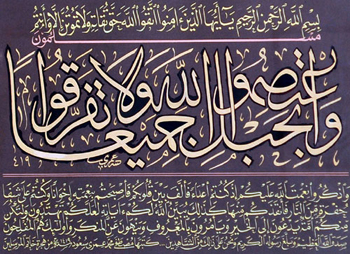 بسم الله الرحمن الرحيم يا أيها الذين آمنوا اتقوا الله حق تقاته ولا تموتن إلا وأنتم
مسلمون
واعتصموا بحبل الله جميعا ولا تفرقوا
واذكروا نعمت الله عليكم إذ كنتم أعداء فألف بين قلوبكم فأصبحتم بنعمته إخوانا وكنتم على شفا
حفرة من النار فأنقذكم منها كذلك يبين الله لكم آياته لعلكم تهتدون ولتكن
منكم أمة يدعون إلى الخير ويأمرون بالمعروف وينهون عن المنكر وأولئك هم المفلحون
صدق الله العظيم وبلغ رسوله الكريم ونحن على ذلك من الشاهدين